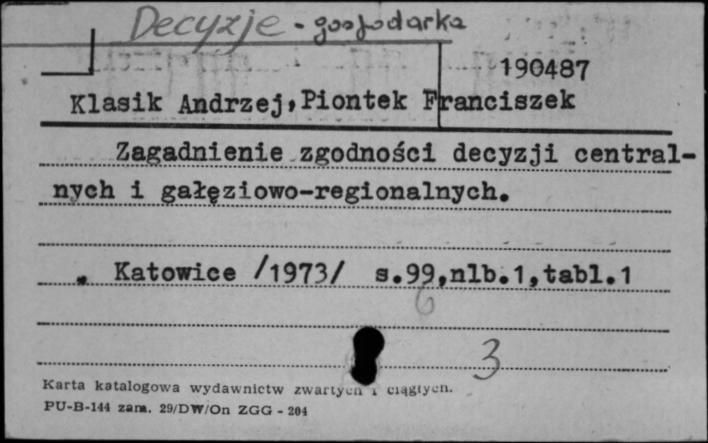 Decyzje - gospodarka
190487
Klasik Andrzej, Piontek Franciszek
Zagadnienie zgodności decyzji central-
nych i gałęziowo-regionalnych.
Katowice /1973/ s.99,nlb.1,tabl.1
6
3
Karta katalogowa wydawnictw zwartych i ciągłych.
PU-B-144 zam. 29/DW/On ZGG - 204